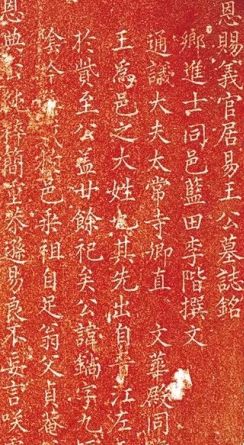 恩賜義官居易王公墓誌銘
鄉進士同邑藍田李階撰文
通議大夫太常寺卿直 文華殿同
王為邑之大姓 其先出自晉江左
於貲至公益廿餘祀矣公諱鏑字九
陰今 邑承祖自足翁父貞菴
恩典公 釋簡重恭遜易良不妄言咲